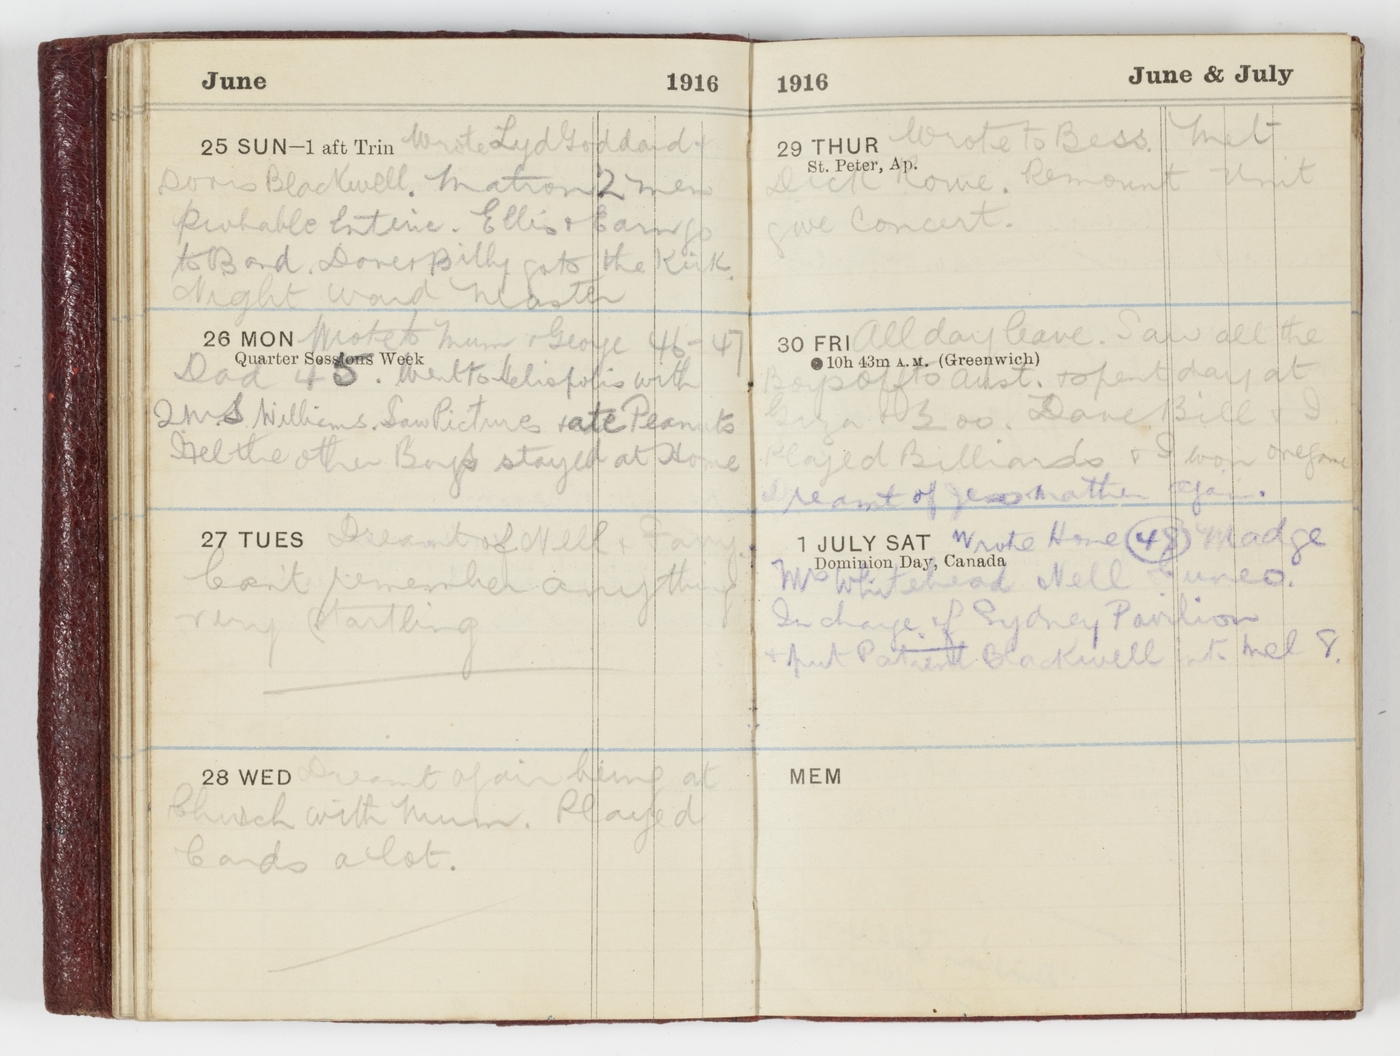 June 1916
25 SUN—1 aft Trin Wrote Lyd Goddard +
Doris Blackwell. Matron 2 men
probable Enteric. Ellis + Earn go
to Board. Dave + Billy go to the Kirk.
Night Ward Master
26 MON Wrote to Mum + George 46-47
Quarter Sessions Week
Dad 45. Went to Heliopolis with
Williams. Saw Pictures + ate Peanuts
the other Boys stayed at Home
27 TUES Dreamt of Nell + Fanny.
Can't remember anything
very startling
28 WED Dreamt again being at
Church with Mum. Played
Cards a lot.
1916 June & July
29 THUR Wrote to Bess. Met
St. Peter, Ap.
Dick Rowe. Remount Unit
give Concert.
30 FRI All day leave. Saw all the
10h 43m A.M. (Greenwich)
Boys off to Aust. + spent day at
Giza + Zoo. Dave Bill + I
Played Billiards + I won one game
Dreamt of Jess Mather again.
1 JULY SAT Wrote Home 48 Madge
Dominion Day, Canada
Mrs Whitehead Nell Cuneo.
In charge of Sydney Pavilion
+ put Patient Blackwell into Mel 8.
MEM